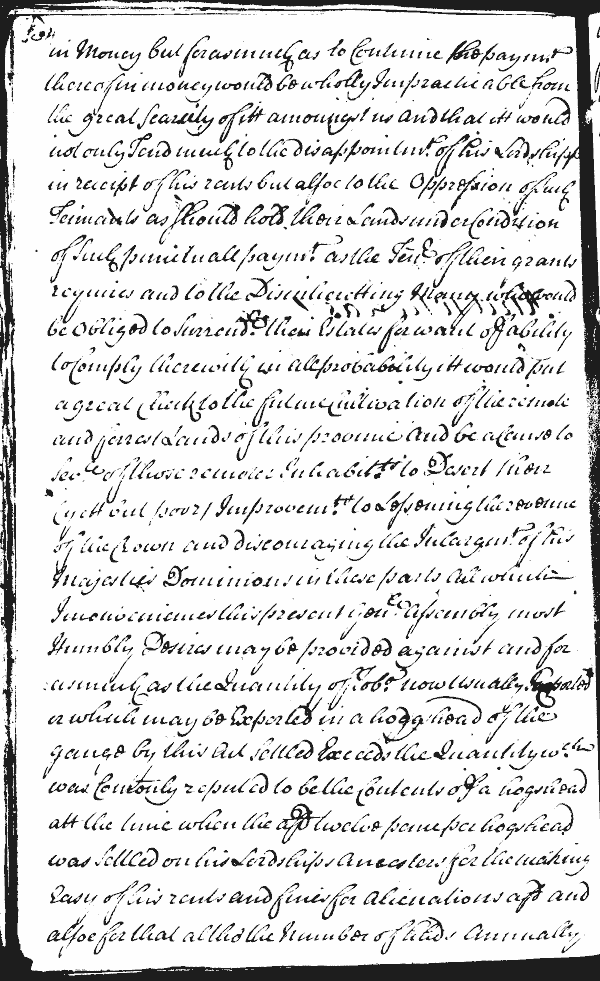 in Money but forasmuch as to Continue the paymt
thereof in money would be wholly Impracticable from
the great Scarcity of itt amongst us and that itt would
not only Tend much to the disappointmt. of his Lordshipp
in receipt of his rents but alsoe to the Oppression of such
Tennants as should hold their Lands under Condition
of Such punctuall paymt. as the Tenr. of their grants
requires and to the Disinheritting Many who would
be Obliged to Surrendr. their Estates for want of ability
to Comply therewith in all probability itt would put
a great Check to the future Cultivation of the remote
and forrest Lands of this province And be a Cause to
Sevll. of those remoter Inhabitts. to Desert their
(yett but poor) Improvemts. to Lessening the revenue
of the Crown and discouraging the Inlargmt. of his
Majesties Dominions in these parts All which
Inconveniences this present Genll. Assembly most
Humbly Desires may be provided against and for
asmuch as the Quantity of Tobo. now Usually Exported
or which may be Exported in a hoggshead of the
gauge by this Act Settled Exceeds the Quantity wch.
was Comonly reputed to be the Contents of a hogshead
att the time when the afd twelve pence per hogshead
was Settled on his Lordships Ancestors for the making
Easy of his rents and fines for Alienations afd and
alsoe for that altho the Number of hhds Annually